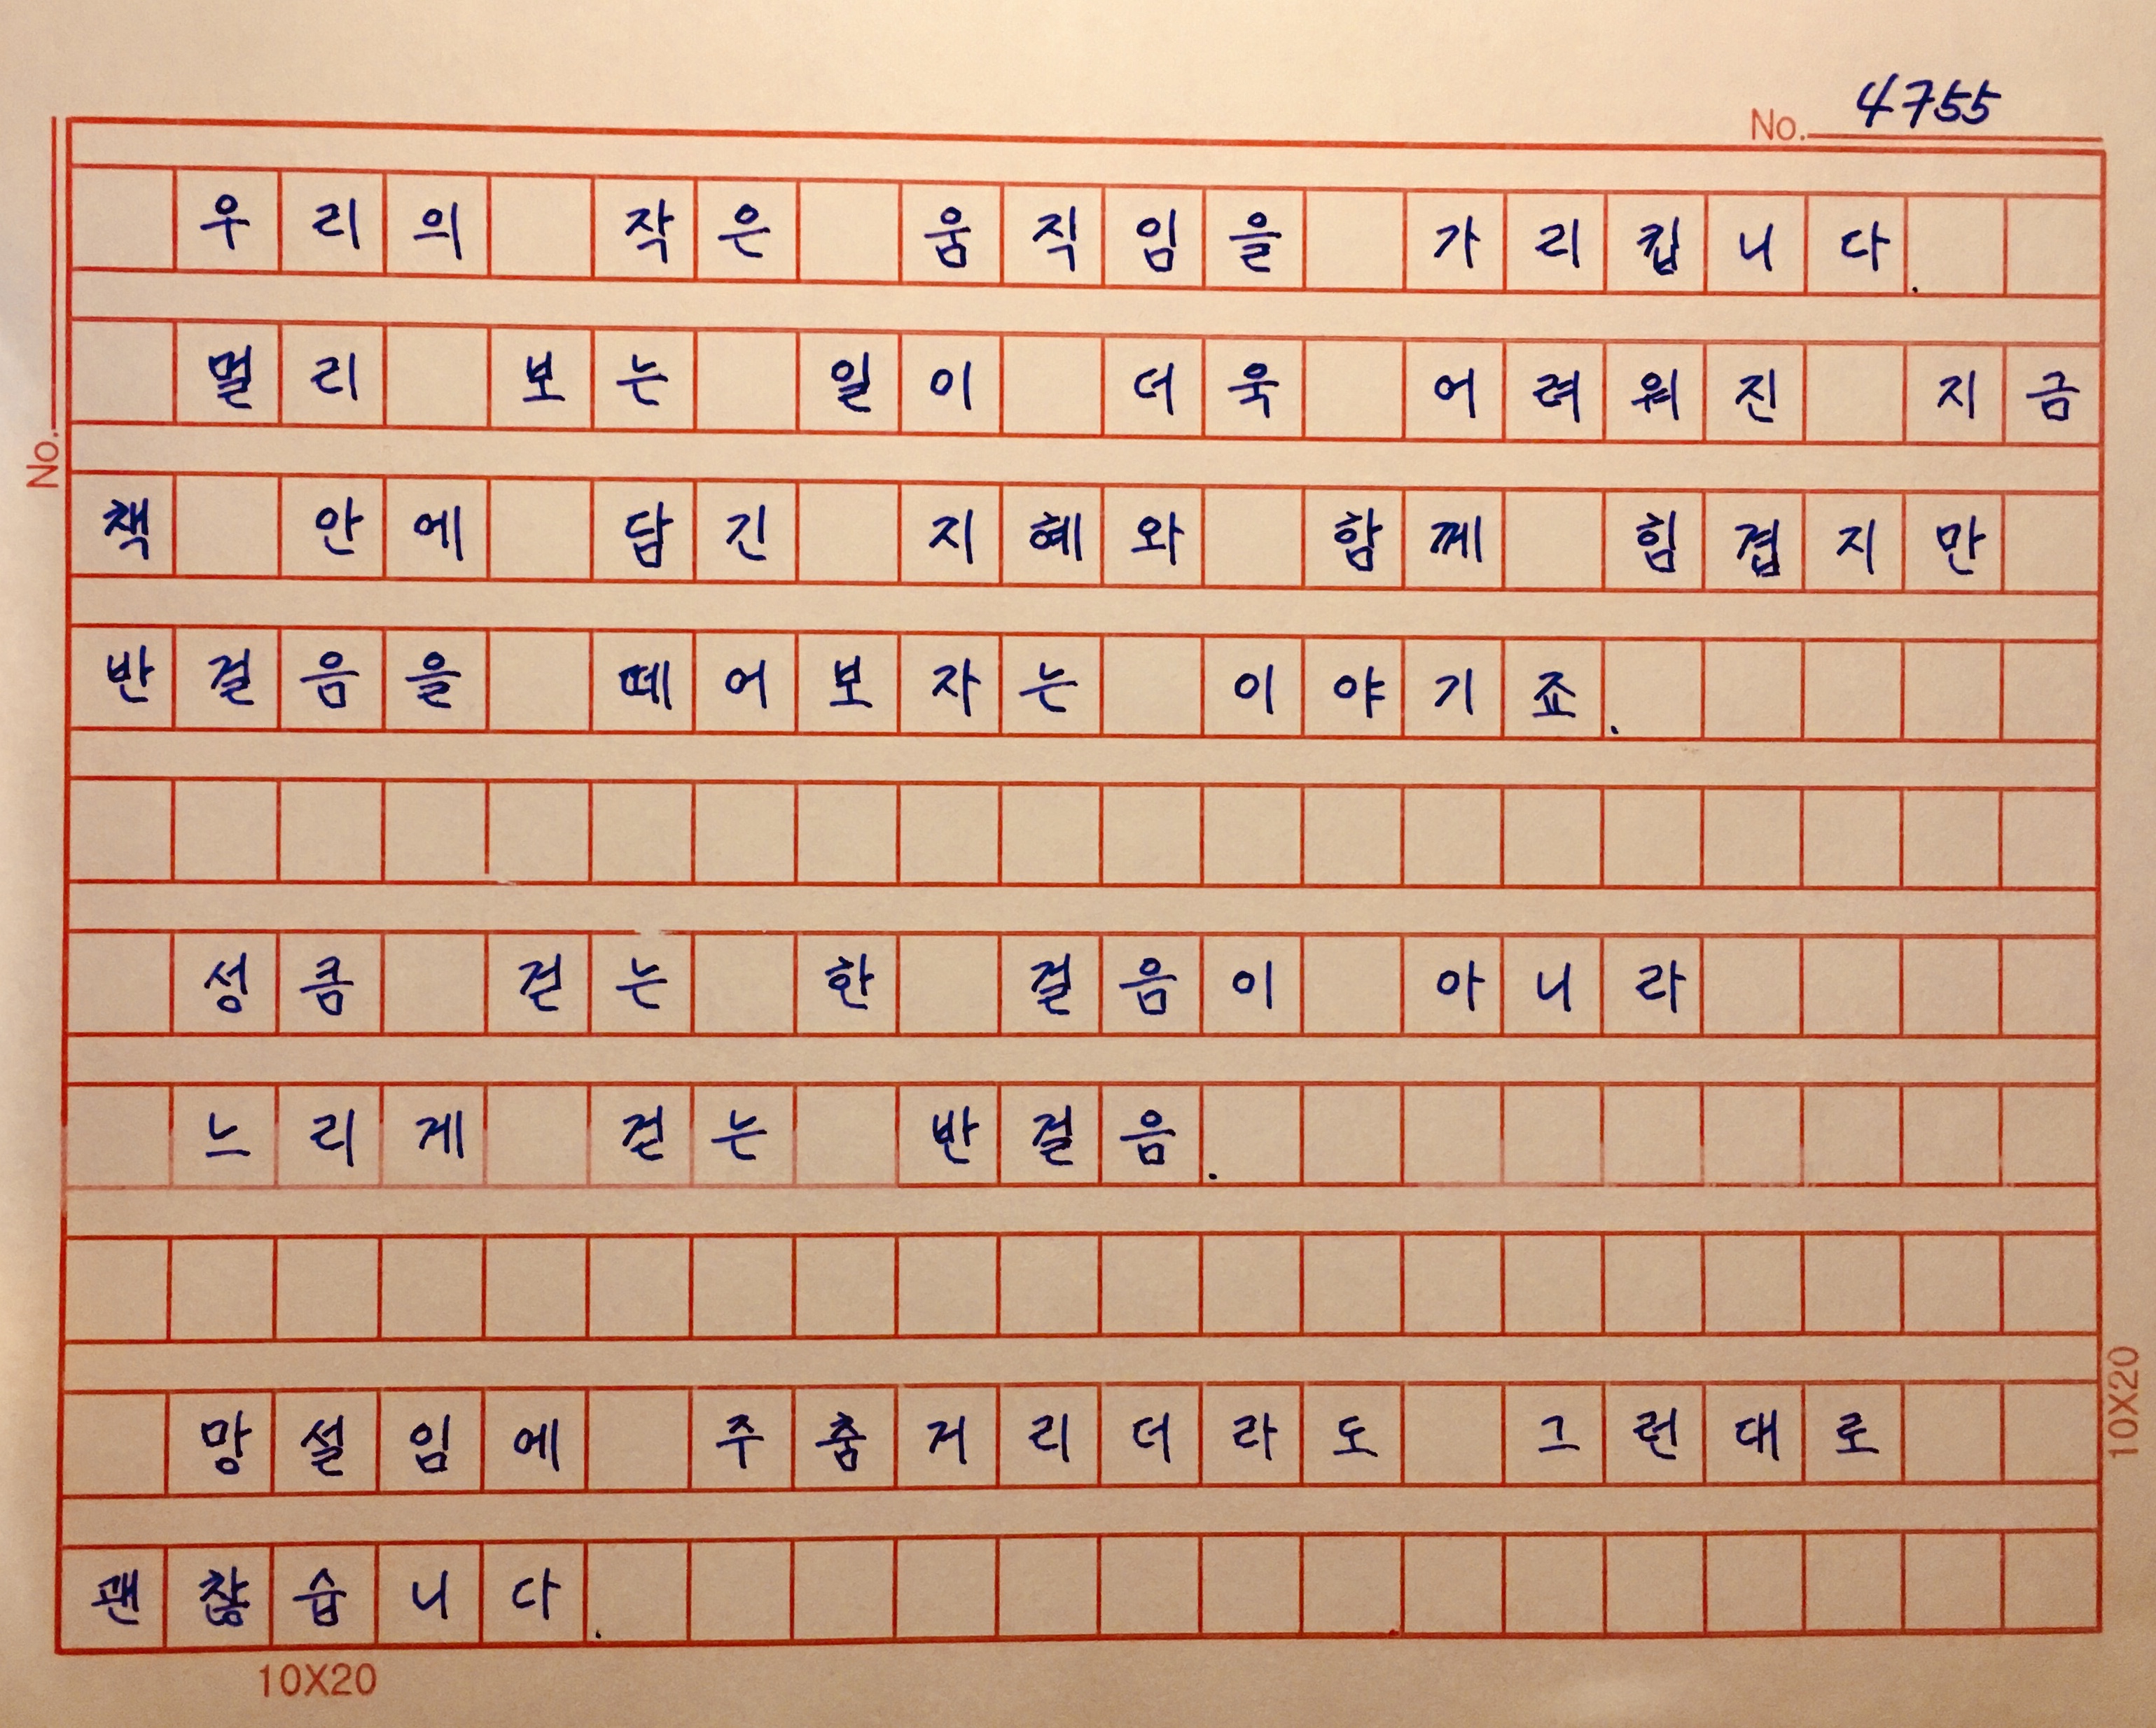 No. 4755
우리의 작은 움직임을 가리킵니다.
멀리 보는 일이 더욱 어려워진 지금
No.
책 안에 담긴 지혜와 함께 힘겹지만
반걸음을 떼어보자는 이야기죠.
성큼 걷는 한 걸음이 아니라
느리게 걷는 반걸음.
망설임에 주춤거리더라도 그런대로
10X20
괜찮습니다.
10X20